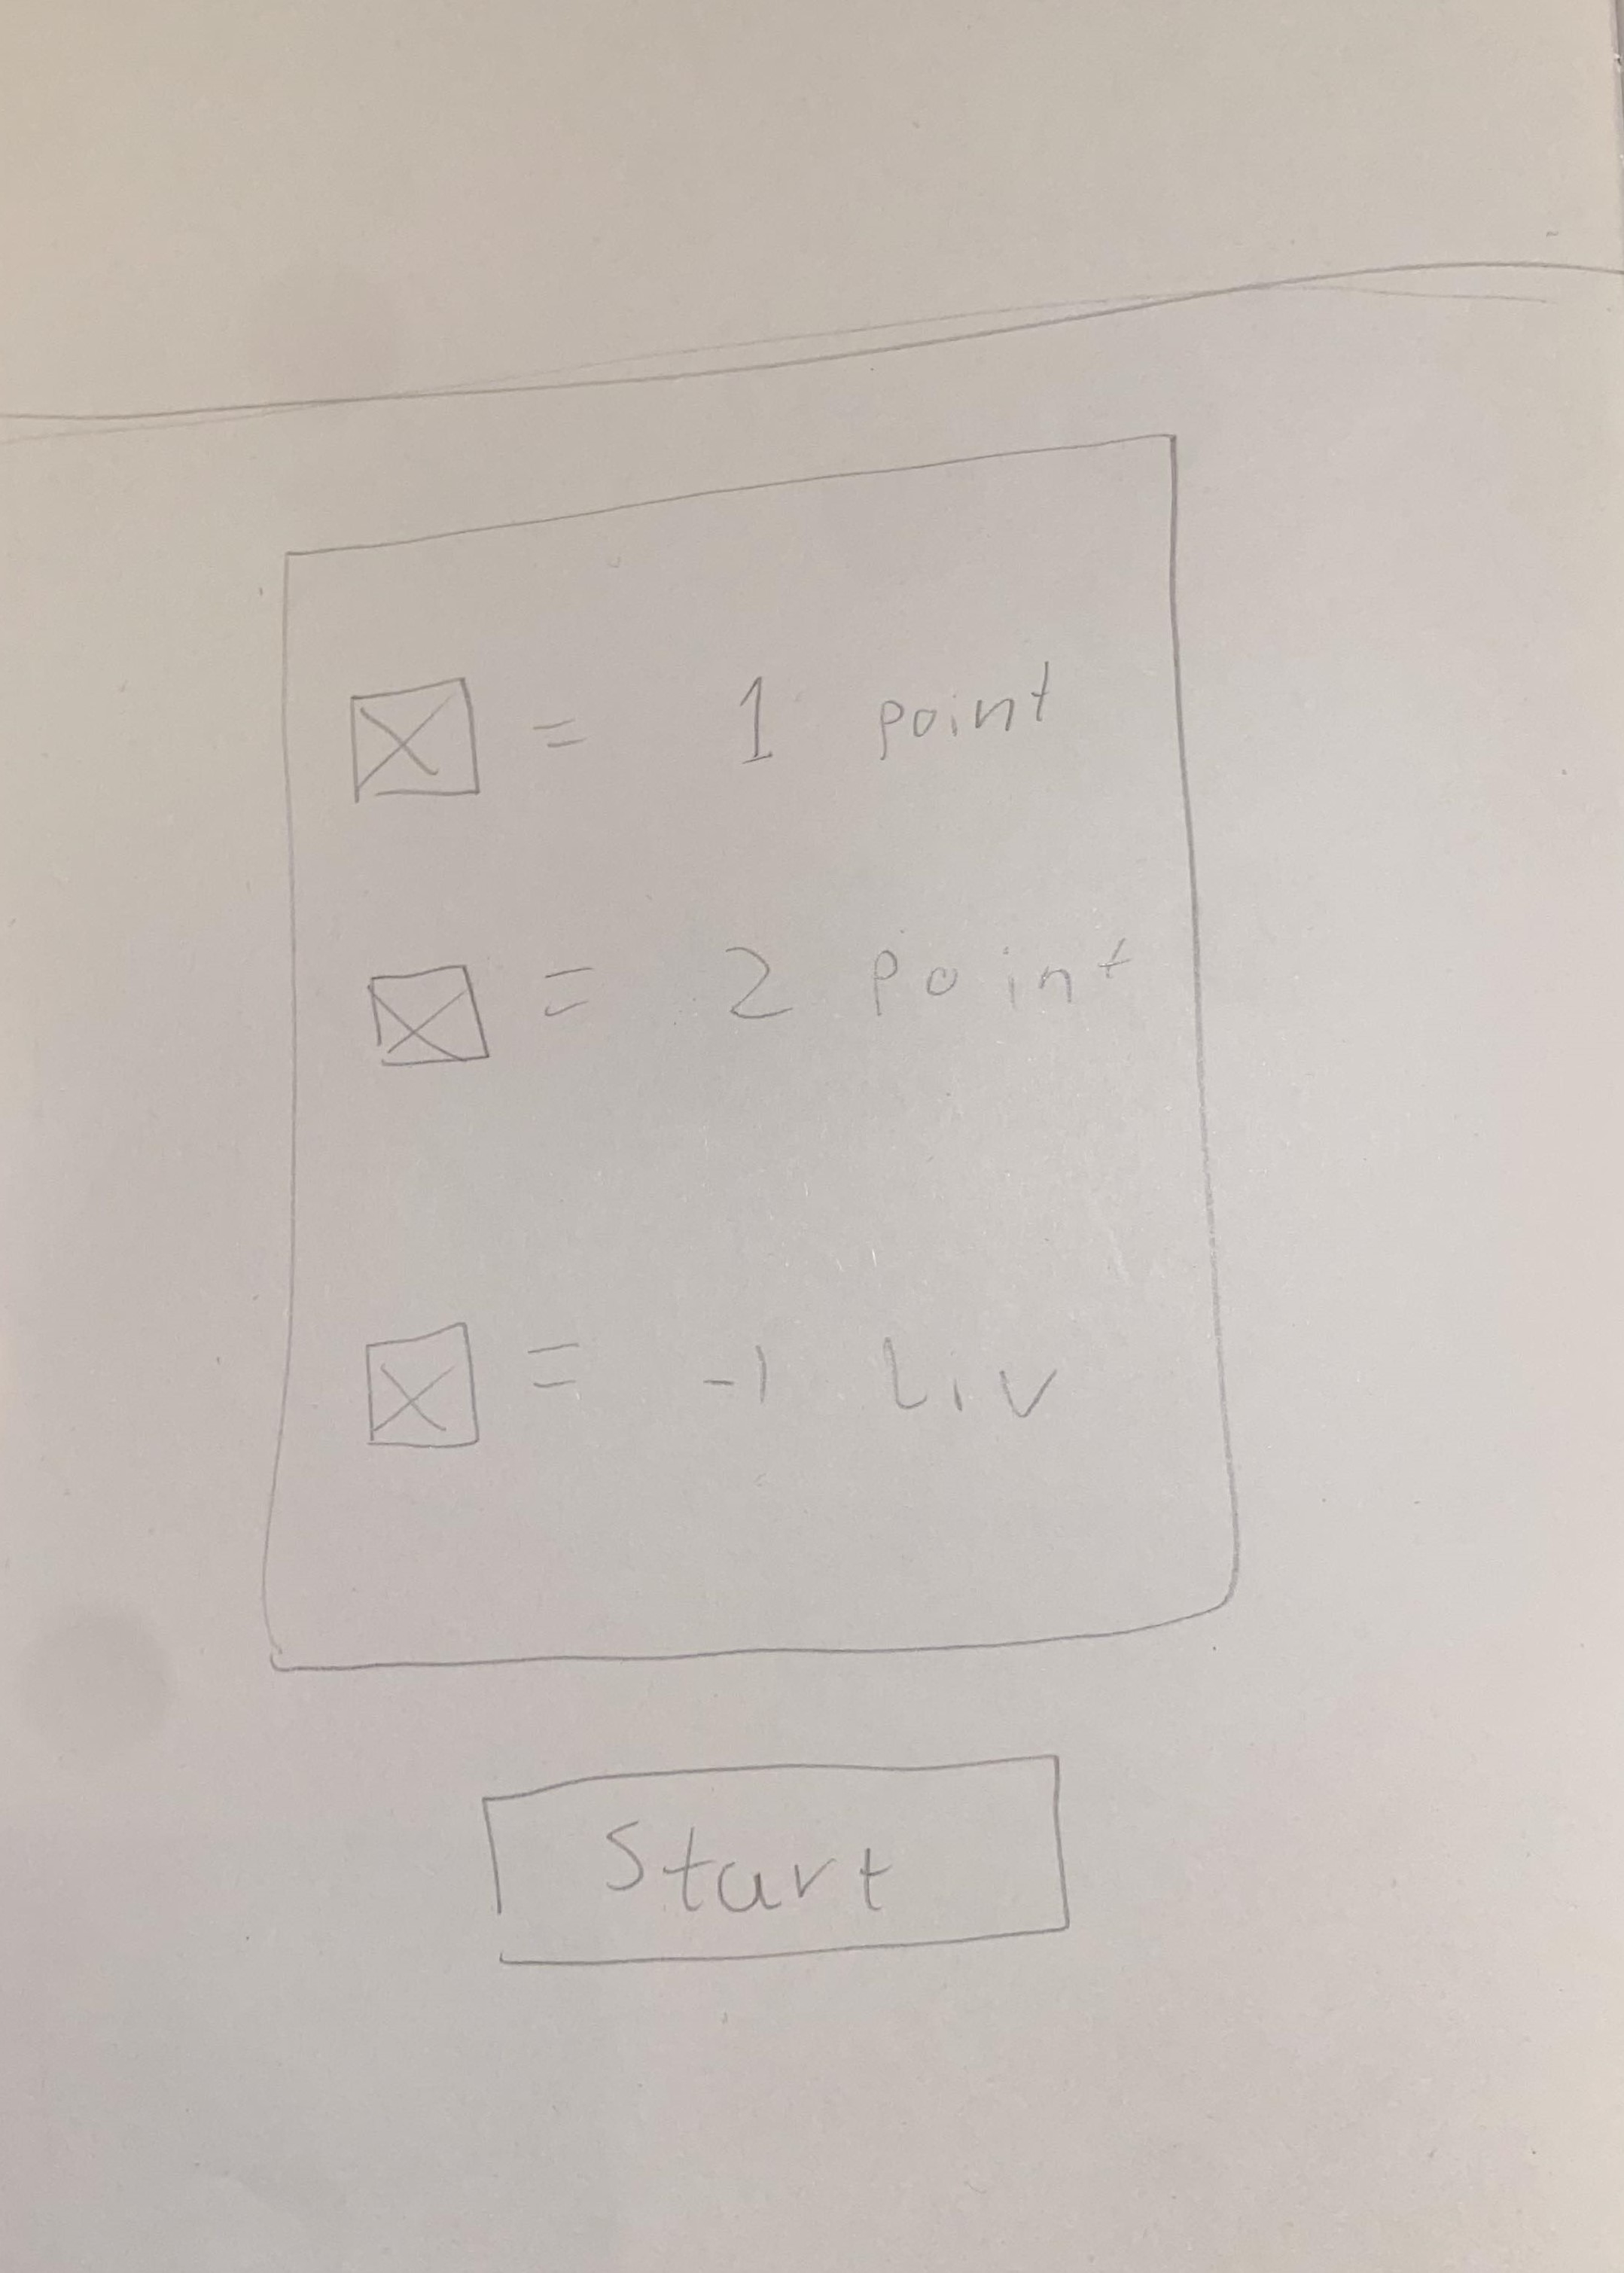 = 1 point
= 2 point
= -1 Liv
Start